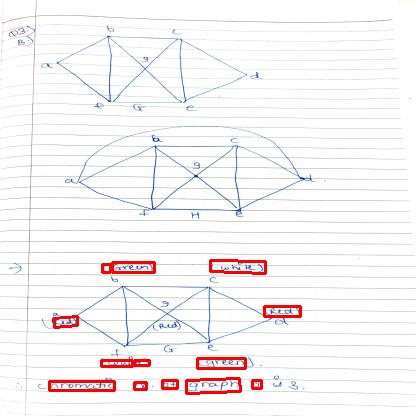 Q3.)
B.)
b c
a g d
f G e
b c
a g d
f H e
→ (green) (white)
b c
a g (Red)
(Red) (Red) d
f G e
(white) (green).
∴ Chromatic no. of graph G is 3.